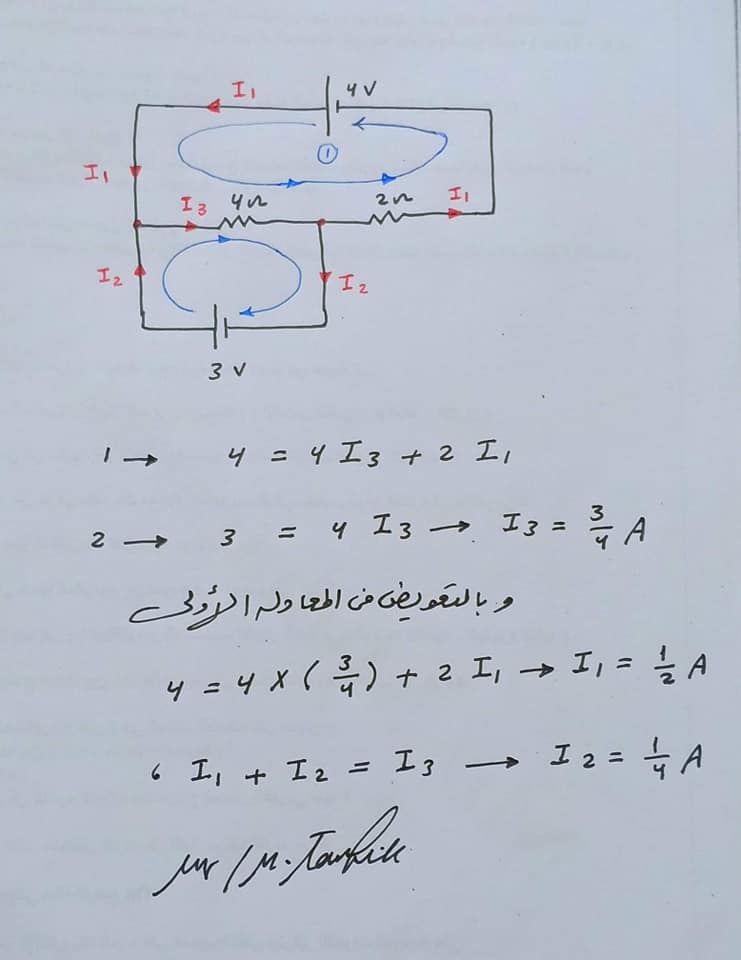 I₁ 4V
①
I₁ I₃ 4Ω 2Ω I₁
I₂ I₂
3 V
1 → 4 = 4 I₃ + 2 I₁
2 → 3 = 4 I₃ → I₃ = 3/4 A
و بالتعويض في المعادلة الأولى
4 = 4 × (3/4) + 2 I₁ → I₁ = 1/2 A
، I₁ + I₂ = I₃ → I₂ = 1/4 A
Mr / M. Tawfik